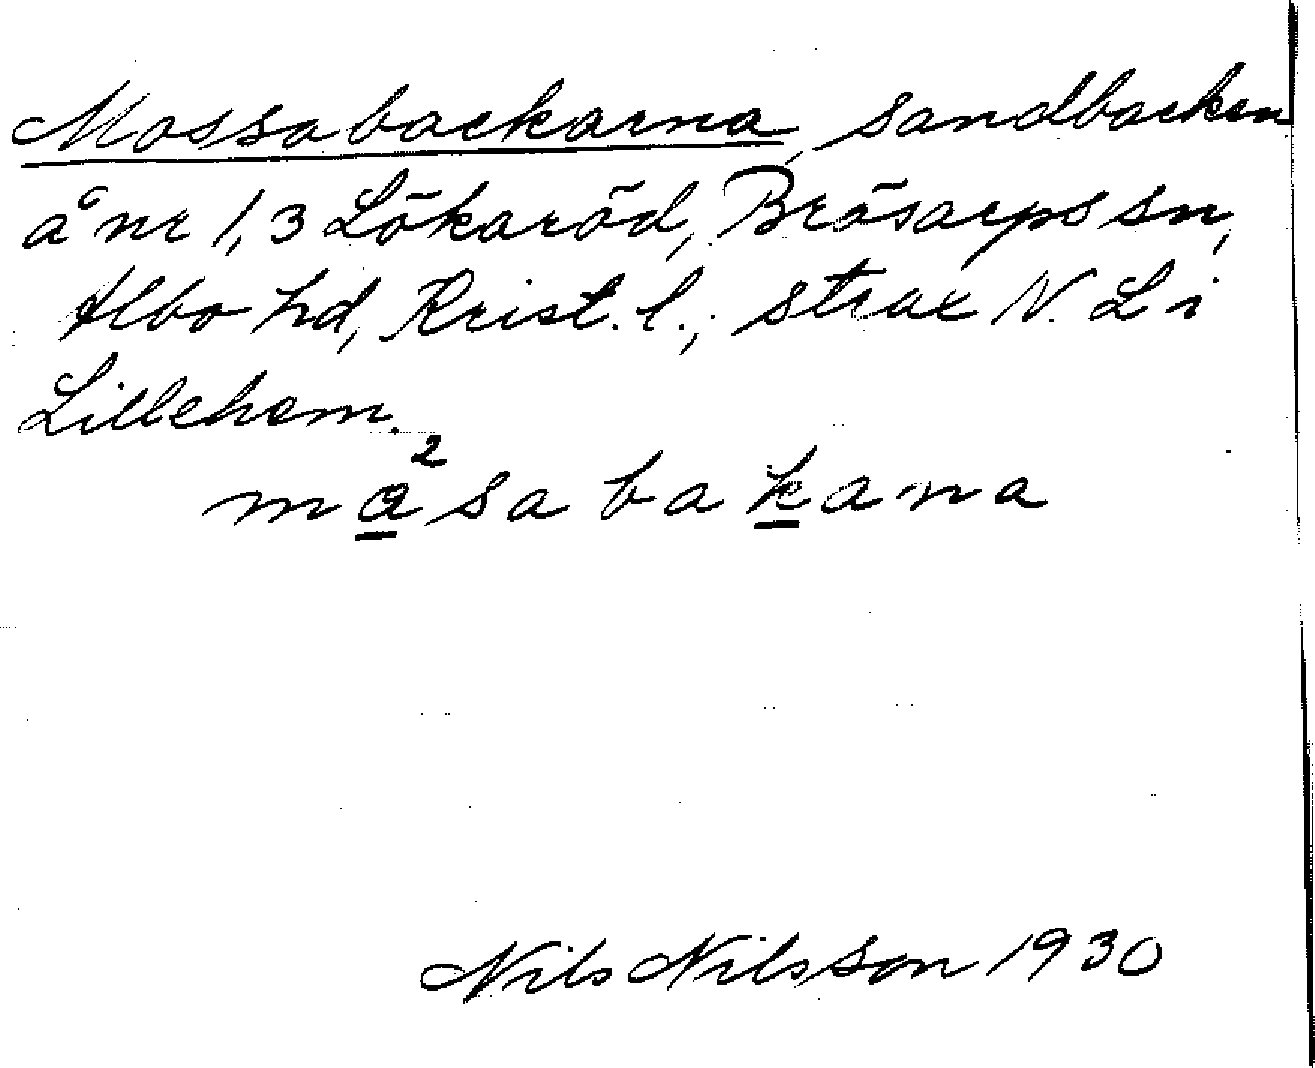 Mossabackarna, sandbacken
å nr 1,3 Lökaröd, Brösarps sn,
Albo hd, Krist. l., strax N. L i
Lillehem.
må²sa bakana
Nils Nilsson 1930